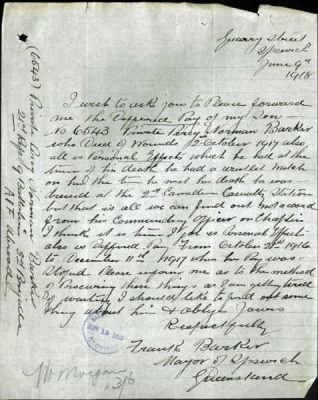 Quarry Street
Ipswich
June 9th
1918
I wish to ask you to Please forward
me the Defferred Pay of my Son
No 6543 Private Percy Norman Barker
who Died of Wounds 12 October 1917 also
all is Personal Effects which he had at the
time of his death he had a wristlet Watch
on him the time he met his death he was
buried at the 2nd Canadian Casualty Station
but that is all we can find out not a word
from his Commanding Officer or Chaplin
I think it is time I is Personal Effects
also is Defferred Pay From October 21st 1916
to December 11th 1917 when his Pay was
Stoped Please inform me as to the method
of Procuring those things as I am getting tired
of waiting I should like to find out some
thing about him & Oblige Yours
Respectfully
Frank Barker
Mayor of Ipswich
Queensland
(6543) Private Percy Norman Barker
A I F Abroad
JUN 13 1918